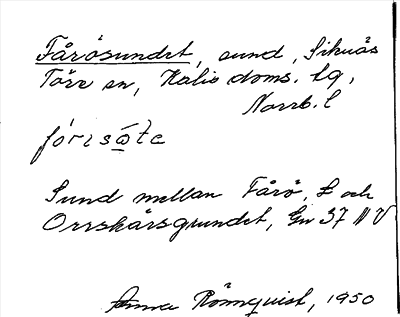 Fårösundet, sund, Siknäs
Töre sn, Kalix doms. lg,
Norrb. l
Sund mellan Fårö, L och
Orrskärsgrundet, Gv 37 NV
Anna Rönnquist, 1950